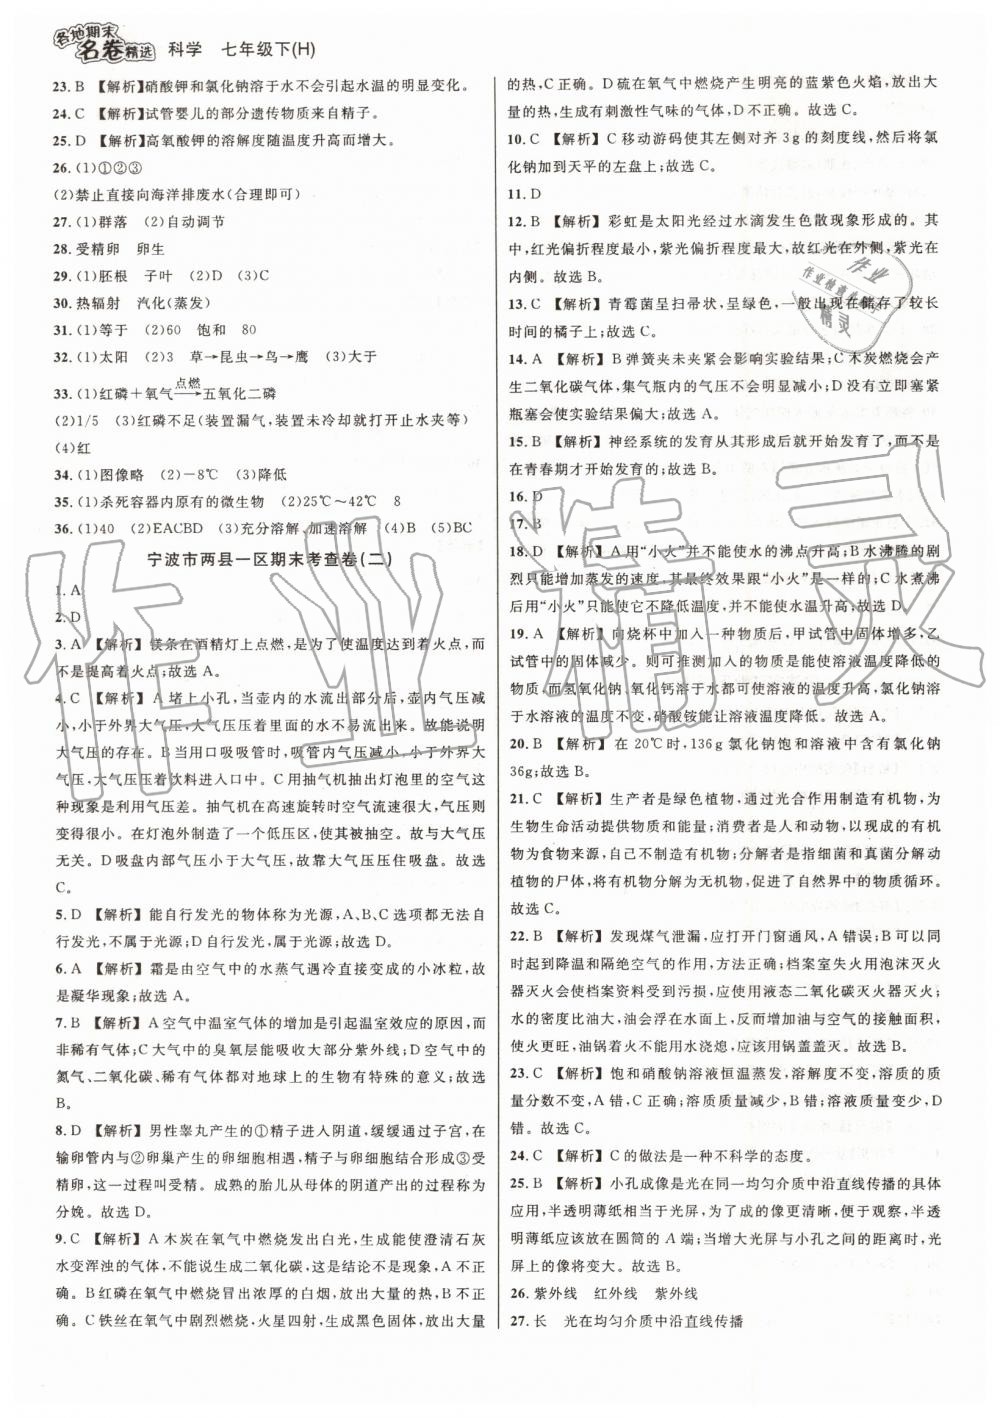 各地期末
名卷精选
科学 七年级下(H)
23. B 【解析】硝酸钾和氯化钠溶于水不会引起水温的明显变化。
24. C 【解析】试管婴儿的部分遗传物质来自精子。
25. D 【解析】高氧酸钾的溶解度随温度升高而增大。
26. (1)①②③
(2)禁止直接向海洋排废水(合理即可)
27. (1)群落 (2)自动调节
28. 受精卵 卵生
29. (1)胚根 子叶 (2)D (3)C
30. 热辐射 汽化(蒸发)
31. (1)等于 (2)60 饱和 80
32. (1)太阳 (2)3 草→昆虫→鸟→鹰 (3)大于
33. (1)红磷+氧气—点燃→五氧化二磷
(2)1/5 (3)红磷不足(装置漏气,装置未冷却就打开止水夹等)
(4)红
34. (1)图像略 (2)－8℃ (3)降低
35. (1)杀死容器内原有的微生物 (2)25℃～42℃ 8
36. (1)40 (2)EACBD (3)充分溶解、加速溶解 (4)B (5)BC
宁波市两县一区期末考查卷(二)
1. A
2. D
3. A 【解析】镁条在酒精灯上点燃,是为了使温度达到着火点,而
不是提高着火点;故选A。
4. C 【解析】A 堵上小孔,当壶内的水流出部分后,壶内气压减
小,小于外界大气压,大气压使壶里面的水不易流出来。故能说明
大气压的存在。B 当用口吸吸管时,吸管内气压减小,小于外界大
气压,大气压压着饮料进入口中。C 用抽气机抽出灯泡里的空气这
种现象是利用气压差。抽气机在高速旋转时空气流速快,气压则
变得很小。在灯泡外制造一个低压区,使其被抽空。故与大气压
无关。D 吸盘内气压小于大气压,故靠大气压压住吸盘。故选
C。
5. D 【解析】能自行发光的物体称为光源,A、B、C选项都无法自
行发光,不属于光源;D自行发光,属于光源;故选D。
6. A 【解析】霜是由空气中的水蒸气遇冷直接变成的小冰粒,故
是凝华现象;故选A。
7. B 【解析】A 空气中温室气体的增加是引起温室效应的原因,而
非稀有气体;C大气中的臭氧层能吸收大部分紫外线;D空气中的
氮气、二氧化碳、稀有气体都对地球上的生物有特殊的意义;故选
B。
8. D 【解析】男性睾丸产生的①精子进入阴道,缓缓通过子宫,在
输卵管内与②卵巢产生的卵细胞相遇,精子与卵细胞结合形成③受
精卵,这一过程叫受精。成熟的胎儿从母体的阴道产出的过程称为
分娩。故选D。
9. C 【解析】A 木炭在氧气中燃烧发出白光,生成能使澄清石灰
水变浑浊的气体,不能说生成二氧化碳,这是结论不是现象,A不正
确。B红磷在氧气中燃烧冒出浓厚的白烟,放出大量的热,B不正
确。C铁丝在氧气中剧烈燃烧,火星四射,生成黑色固体,放出大量
的热,C正确。D 硫在氧气中燃烧产生明亮的蓝紫色火焰,放出大
量的热,生成有刺激性气味的气体,D不正确。故选C。
10. C 【解析】C 移动游码使其左侧对齐3g的刻度线,然后将氯
化钠加到天平的左盘上;故选C。
11. D
12. B 【解析】彩虹是太阳光经过水滴发生色散现象形成的。其
中,红光偏折程度最小,紫光偏折程度最大,故红光在外侧,紫光在
内侧。故选B。
13. C 【解析】青霉菌呈扫帚状,呈绿色,一般出现在储存了较长
时间的橘子上;故选C。
14. A 【解析】B弹簧夹未夹紧会影响实验结果;C木炭燃烧会产
生二氧化碳气体,集气瓶内的气压不会减小;D没有立即塞紧
瓶塞会使实验结果偏大;故选A。
15. B 【解析】神经系统的发育从其形成后就开始发育,而不是
在青春期才开始发育的;故选B。
16. D
17. B
18. D 【解析】A用“小火”并不能使水的沸点升高;B水沸腾的剧
烈只能增加蒸发的速度,其最终效果跟“小火”是一样的;C水煮沸
后用“小火”只能使它不降低温度,并不能使水温升高;故选D。
19. A 【解析】向烧杯中加入一种物质后,甲试管中固体增多,乙
试管中的固体减少。则可推测加入的物质是能使溶液温度降低的
物质,而氢氧化钠、氧化钙溶于水都可使溶液的温度升高,氯化钠溶
于水溶液的温度不变,硝酸铵能让溶液温度降低。故选A。
20. B 【解析】在20℃时,136g氯化钠饱和溶液中含有氯化钠
36g;故选B。
21. C 【解析】生产者是绿色植物,通过光合作用制造有机物,为
生物生命活动提供物质和能量;消费者是人和动物,以现成的有机
物为食物来源,自己不制造有机物;分解者是指细菌和真菌分解动
植物的尸体,将有机物分解为无机物,促进了自然界中的物质循环。
故选C。
22. B 【解析】发现煤气泄漏,应打开门窗通风,A错误;B可以同
时起到降温和隔绝空气的作用,方法正确;档案室失火用泡沫灭火
器灭火会使档案资料受到污损,应使用液态二氧化碳灭火器灭火;
水的密度比油大,油会浮在水面上,反而增大油与空气的接触面积,
使火更旺,油锅着火不能用水浇熄,应该用锅盖盖灭。故选B。
23. C 【解析】饱和硝酸钠溶液恒温蒸发,溶解度不变,溶质的质
量分数不变,A错,C正确;溶质质量减少,B错;溶液质量变少,D
错。故选C。
24. C 【解析】C的做法是一种不科学的态度。
25. B 【解析】小孔成像是光在同一均匀介质中沿直线传播的具体
应用,半透明薄纸相当于光屏,为了成的像更清晰,便于观察,半透
明薄纸应放在圆筒的A端;当增大光屏与小孔之间的距离时,光
屏上的像将变大。故选B。
26. 紫外线 红外线 紫外线
27. 长 光在均匀介质中沿直线传播
作业精灵
作业
作业检查
精灵